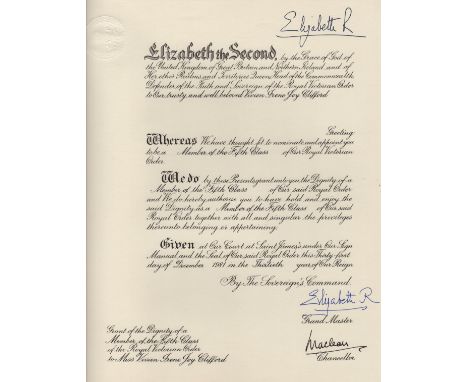 Elizabeth R
Elizabeth the Second, by the Grace of God of
the United Kingdom of Great Britain and Northern Ireland and of
Her other Realms and Territories Queen, Head of the Commonwealth
Defender of the Faith and Sovereign of the Royal Victorian Order
to Our trusty and well beloved Vivien Irene Joy Clifford
Greeting
Whereas We have thought fit to nominate and appoint you
to be a Member of the Fifth Class of Our Royal Victorian
Order
We do by these Presents grant unto you the Dignity of a
Member of the Fifth Class of Our said Royal Order
and We do hereby authorise you to have hold and enjoy the
said Dignity as a Member of the Fifth Class of Our said
Royal Order together with all and singular the privileges
thereunto belonging or appertaining.
Given at Our Court at Saint James's under Our Sign
Manual and the Seal of Our said Royal Order this Thirty-first
day of December 1981 in the Thirtieth year of Our Reign
By The Sovereign's Command.
Elizabeth R
Grand Master
Grant of the Dignity of a
Member of the Fifth Class
of the Royal Victorian Order
to Miss Vivien Irene Joy Clifford
Maclean
Chancellor